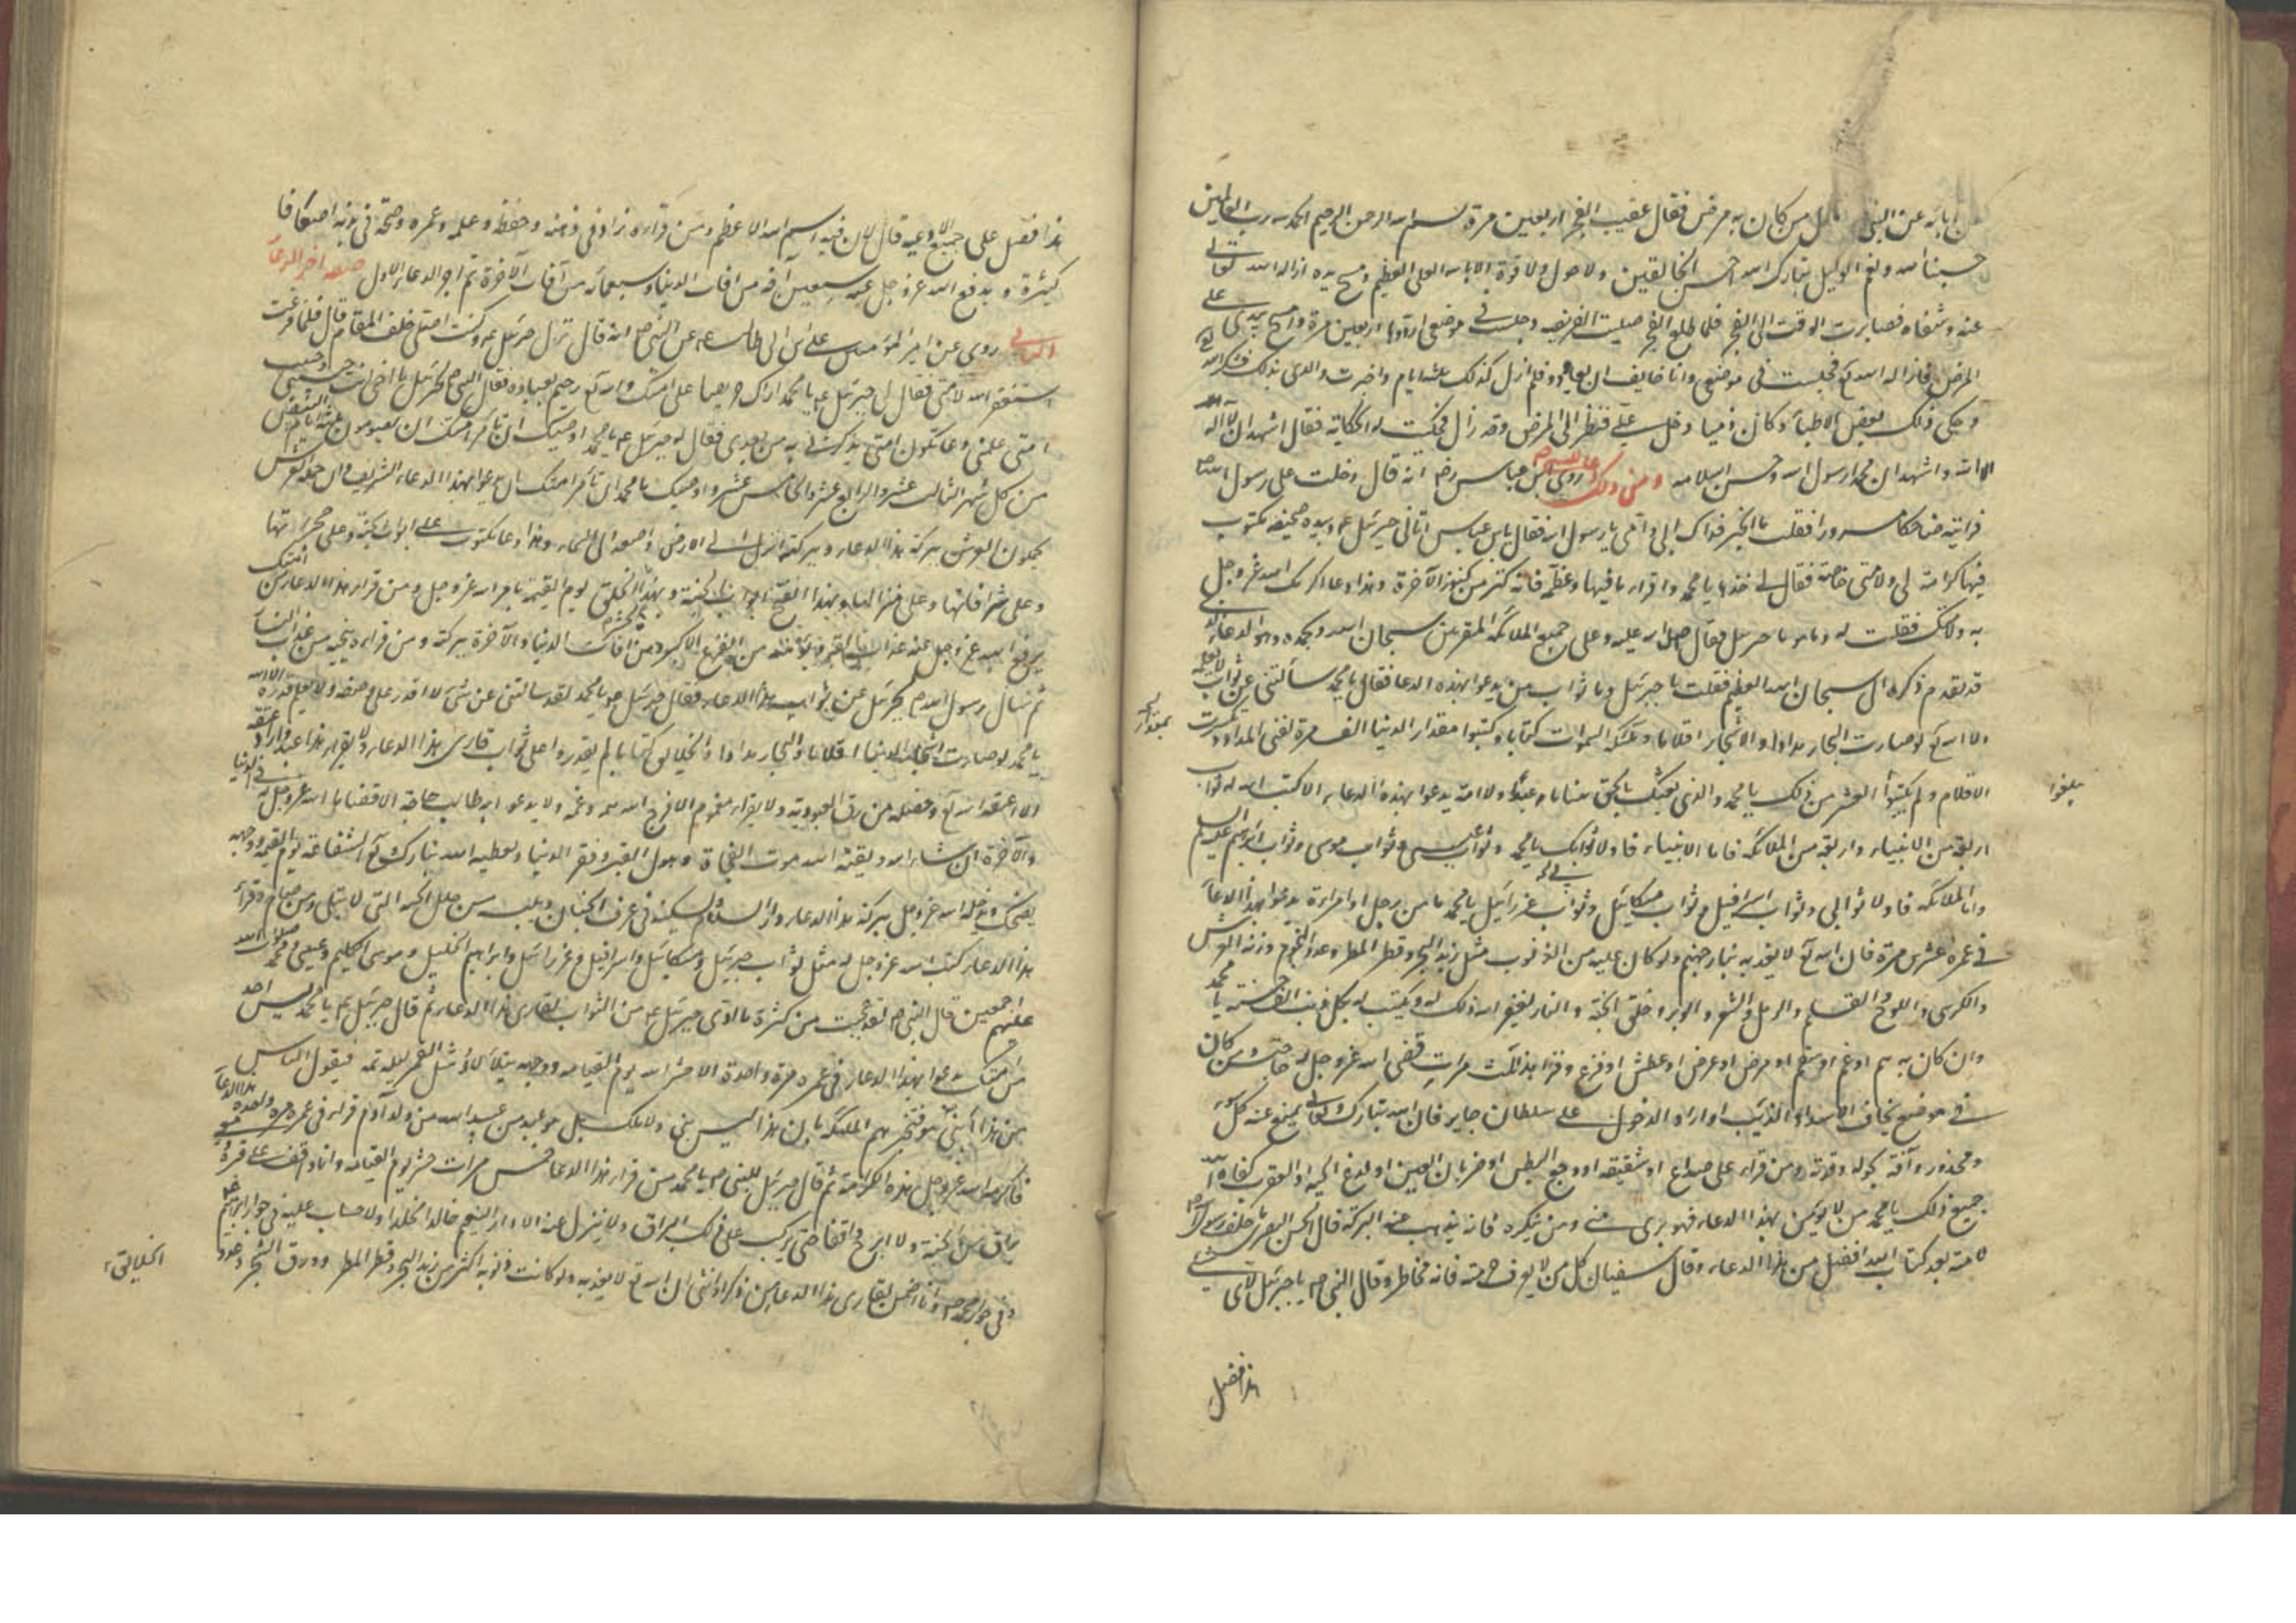 عن ابائه عن النبي قال من كان به مرض فقال عقيب الفجر اربعين مرة بسم الله الرحمن الرحيم الحمد لله رب العالمين
حسبنا الله ونعم الوكيل تبارك الله احسن الخالقين ولا حول ولا قوة الا بالله العلي العظيم ومسح يده ازاله الله تعالى
عنه وشفاه فصابرت الوقت الى الفجر فلما طلع الفجر صليت الفريضه وجلست في موضعي ارددها اربعين مرة وامسح بيدي على
المرض فازاله الله تع فجلست في موضعي وانا خايف ان يعاود فلم ازل كذلك ثلثه ايام واخبرت والدي بذلك فشكر الله
وحكى ذلك لبعض الاطباء وكان ذميا دخل علي فنظر الى المرض وقد زال فحكيت له الحكاية فقال اشهد ان لا اله
الا الله واشهد ان محمدا رسول الله وحسن اسلامه ومن ذلك روى ابن عباس رضه انه قال دخلت على رسول الله ص
فرايته ضاحكا مسرورا فقلت ما الخبر فداك ابي وامي يا رسول الله فقال يابن عباس اتاني جبرئيل ع وبيده صحيفه مكتوب
فيها كرامة لي ولامتي خاصة فقال لي خذها يا محمد واقراء ما فيها وعظمه فانه كنز من كنوز الآخرة وهذا دعاء اكرمك الله عز وجل
به ولامتك فقلت له وما هو يا جبرئيل فقال صلى الله عليه وعلى جميع الملائكة المقربين سبحان الله وبحمده وهو الدعاء الذي
قد تقدم ذكره الى سبحان الله العظيم فقلت يا جبرئيل وما ثواب من يدعوا بهذه الدعا فقال يا محمد سالتني عن ثواب لا يعلمه
الا الله تع لو صارت البحار مدادا والاشجار اقلاما وملائكة السموات كتابا وكتبوا مقدار الدنيا الف مرة لفنى المداد وتكسرت
الاقلام ولم يكتبوا العشر من ذلك يا محمد والذي بعثك بالحق نبيا ما من عبد ولا امة يدعوا بهذه الدعاء الا كتب الله له ثواب
اربعة من الانبياء واربعة من الملائكة فاما الانبياء فاولا ثوابك يا محمد وثواب عيسى وثواب موسى وثواب ابراهيم عليهم السلم
واما الملائكة فاولا ثوابي وثواب اسرافيل وثواب ميكائيل وثواب عزرائيل يا محمد ما من رجل او امراءة يدعوا بهذا الدعا
في عمره عشرين مرة فان الله تع لا يعذبه بنار جهنم ولو كان عليه من الذنوب مثل زبد البحر وقطر المطر وعدد النجوم وزنة العرش
والكرسي واللوح والقلم والرمل والشعر والوبر وخلق الجنة والنار لغفر الله ذلك له ويكتب له بكل ذنب الف حسنة يا محمد
وان كان به هم او غم او سقم او مرض او عرض او عطش او فزع وقرا هذا ثلث مرات قضى الله عز وجل له حاجته ومن كان
في موضع يخاف الاسد او الذيب او اراد الدخول على سلطان جاير فان الله تبارك وتعالى يمنع عنه كل سوء
ومحذور وآفة بحوله وقوته ومن قراه على صداع او شقيقه او وجع البطن او ضربان العين او لدغ الحيه او العقرب كفاه الله
جميع ذلك يا محمد من لا يؤمن بهذا الدعاء فهو بري مني ومن ينكره فانه يذهب عنه البركة قال الحسن البصري ما خلف رسول الله ص
لامته بعد كتاب الله افضل من هذا الدعاء وقال سفيان كل من لا يعرف حرمته فانه مخاطر وقال النبي ص يا جبرئيل لاي شيء
هذا فضل
يبلغوا
هذا فضل على جميع الادعيه قال لان فيه اسم الله الاعظم ومن قراه زاد في ذهنه وحفظه وعلمه وعمره وصحة في بدنه اضعافا
كثيرة ويدفع الله عز وجل عنه سبعين افه من افات الدنيا وسبعمائه من آفات الآخرة تم اجر الدعاء الاول صفه اجر الدعاء
الثاني روى عن امير المؤمنين علي بن ابي طالب ع عن النبي ص انه قال نزل جبرئيل ع وكنت اصلي خلف المقام قال فلما فرغت
استغفرت الله لامتي فقال لي جبرئيل ع يا محمد اراك حريصا على امتك والله تع رحيم بعباده فقال النبي ص لجبرئيل يا اخي انت حبيبي وحبيب
امتي علمني دعاء تكون امتي يذكرني به من بعدي فقال له جبرئيل ع يا محمد اوصيك ان تامر امتك ان يصوموا ثلثه ايام البيض
من كل شهر الثالث عشر والرابع عشر والخامس عشر واوصيك يا محمد ان تامر امتك ان يدعوا بهذا الدعاء الشريف وان حملة العرش
يحملون العرش ببركة هذا الدعاء وببركته انزل الى الارض واصعد الى السماء وهذا دعاء مكتوب على ابواب الجنة وعلى حجراتها
وعلى شرافاتها وعلى منازلها وبهذا تفتح ابواب الجنة وبهذا يحشر الخلق يوم القيمة بامر الله عز وجل ومن قراء هذا الدعاء من امتك
يرفع الله عز وجل عنه عذاب القبر ويؤمنه من الفزع الاكبر ومن افات الدنيا والآخرة ببركته ومن قراه ينجيه من عذاب النار
ثم سال رسول الله ص لجبرئيل عن ثواب هذا الدعاء فقال جبرئيل ع يا محمد لقد سالتني عن شيء لا اقدر على وصفه ولا يعلم قدره الا الله
يا محمد لو صارت اشجار الدنيا اقلاما والبحار مدادا والخلايق كتابا لم يقدروا على ثواب قارى هذا الدعاء ولا يقراء هذا عبد واراد عتقه
الا اعتقه الله تع وخلصه من رق العبوديه ولا يقراه مغموم الا فرج الله همه وغمه ولا يدعو به طالب حاجة الا قضاها الله عز وجل له في الدنيا
والآخرة ان شاء الله ويقيه الله موت الفجاة وهول القبر وفقر الدنيا ويعطيه الله تبارك وتع الشفاعة يوم القيمه ووجهه
يضحك ويدخله الله عز وجل ببركة هذا الدعاء دار السلام ويسكنه في غرف الجنان ويلبسه من حلل الجنه التي لا تبلى ومن صام وقراء
هذا الدعاء كتب الله عز وجل له مثل ثواب جبرئيل وميكائيل واسرافيل وعزرائيل وابراهيم الخليل وموسى الكليم وعيسى ومحمد صلوات الله
عليهم اجمعين قال النبي ص لقد عجبت من كثرة ما ذكر جبرئيل ع من الثواب لقارى هذا الدعاء ثم قال جبرئيل ع يا محمد ليس احد
من امتك يدعوا بهذا الدعاء في عمره مرة واحدة الا حشره الله يوم القيامه ووجهه يتلالا مثل القمر ليله تمه فيقول الناس
من هذا انبي هو فتخبرهم الملئكة بان هذا ليس بنبي ولا ملك بل هو عبد من عبيد الله من ولد آدم قراء في عمره مرة واحدة هذا الدعاء
فاكرمه الله عز وجل بهذه الكرامة ثم قال جبرئيل للنبي ص يا محمد من قراء هذا الدعا خمس مرات حشر يوم القيامه وانا واقف على قبره
ومعي براق من الجنة ولا ابرح واقفا حتى يركب على ذلك البراق ولا ينزل عنه الا في دار النعيم خالدا مخلدا ولا حساب عليه في جوار ابراهيم ع
وفي جوار محمد ص وانا اضمن لقارى هذا الدعاء من ذكر او انثى ان الله تع لا يعذبه ولو كانت ذنوبه اكثر من زبد البحر وقطر المطر وورق الشجر وعدد
الخلايق